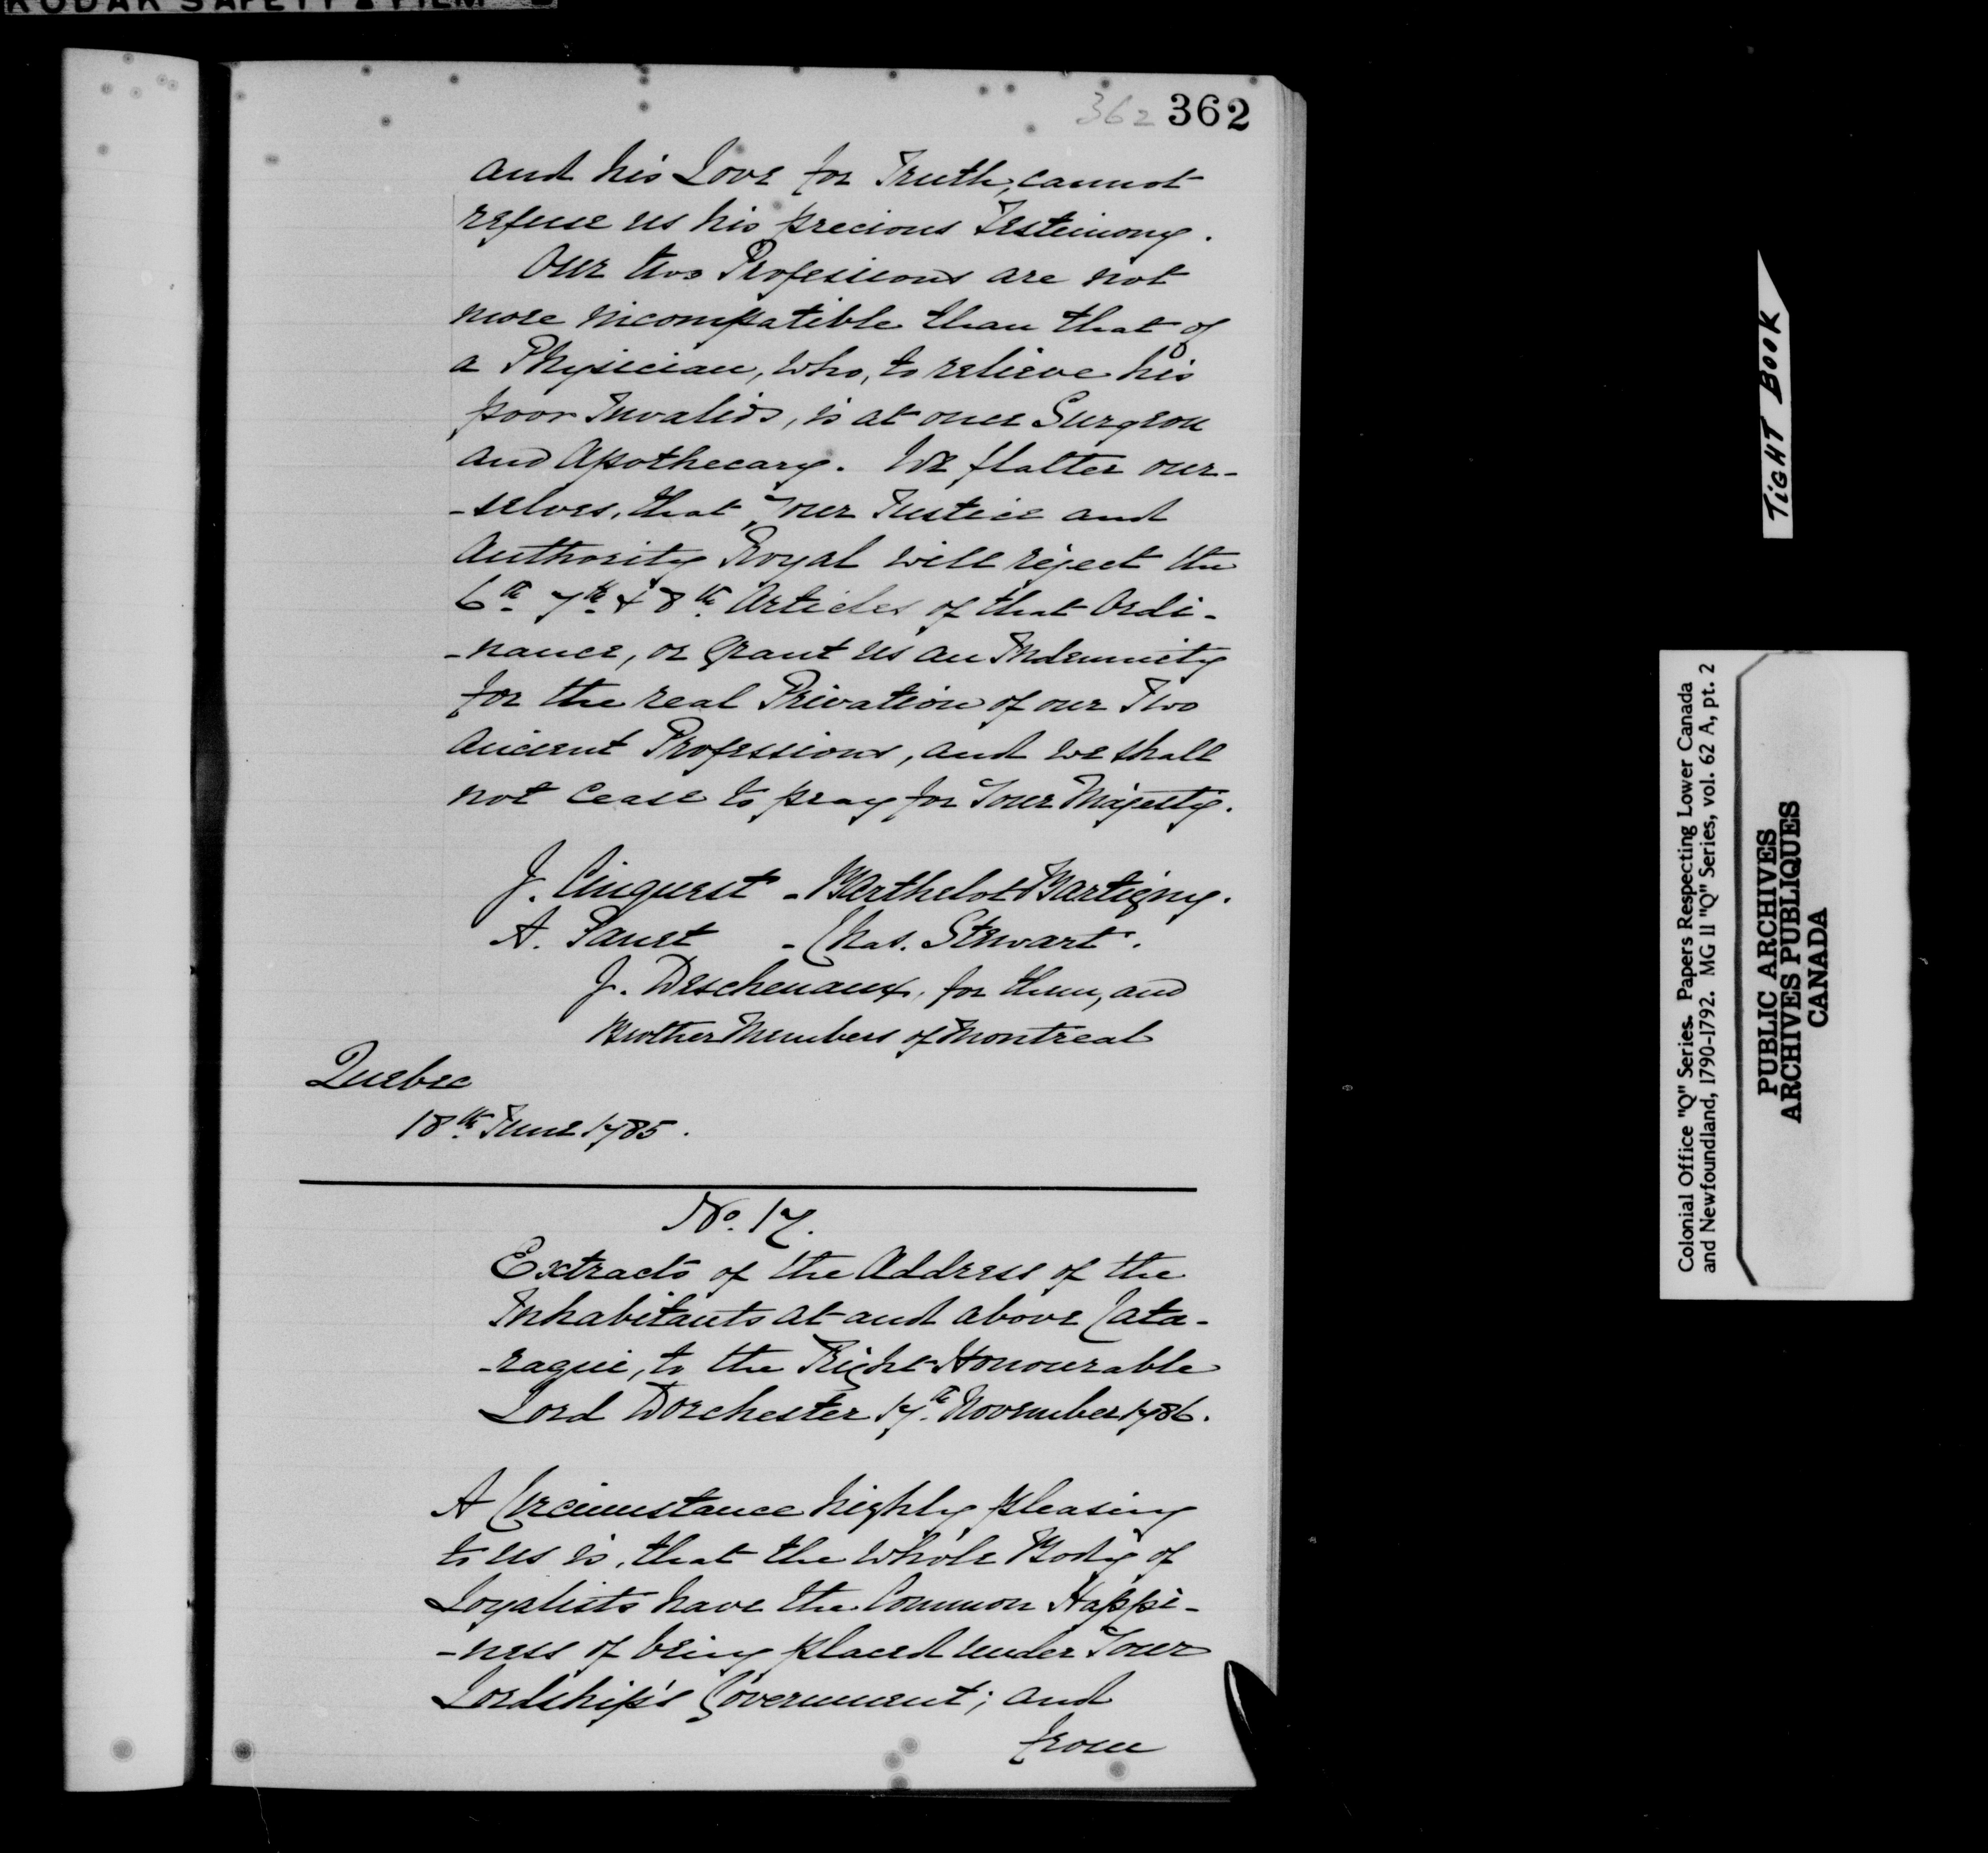 KODAK SAFETY FILM
362 362
and his Love for Truth, cannot
refuse us his precious Testimony.
Our two Professions are not
more incompatible than that of
a Physician, who, to relieve his
poor Invalids, is at once Surgeon
and Apothecary. We flatter our-
-selves, that Your Justice and
Authority Royal will reject the
6th 7th & 8th Articles of that Ordi-
-nance, or grant us an Indemnity
for the real Privation of our Two
ancient Professions, and we shall
not cease to pray for Your Majesty.
J. Pinguet - Berthelot Dartigny.
A. Panet - Chas. Stewart.
J. Deschenaux, for them, and
Brother Members of Montreal
Quebec
18th June 1785.
No. 17.
Extracts of the Address of the
Inhabitants at and above Cata-
-raqui, to the Right Honourable
Lord Dorchester 17th November 1786.
A Circumstance highly pleasing
to us is, that the whole Body of
Loyalists have the Common Happi-
-ness of being placed under Your
Lordship's Government; and
from
TIGHT BOOK
Colonial Office "Q" Series. Papers Respecting Lower Canada
and Newfoundland, 1790-1792. MG 11 "Q" Series, vol. 62 A, pt. 2
PUBLIC ARCHIVES
ARCHIVES PUBLIQUES
CANADA